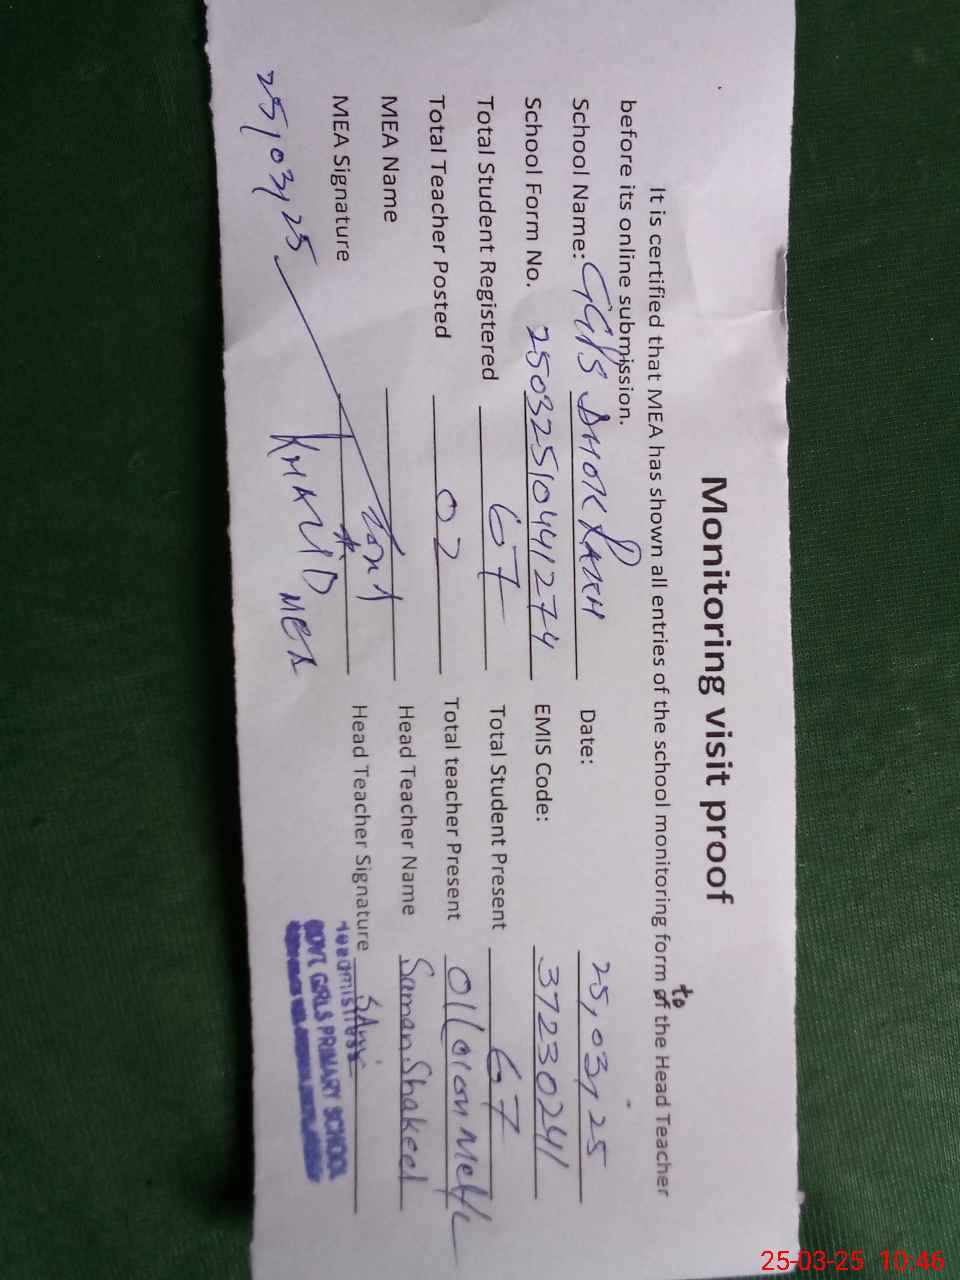 Monitoring visit proof
It is certified that MEA has shown all entries of the school monitoring form of to the Head Teacher
before its online submission.
School Name: GGPS DHOK Date: 25,03,25
School Form No. 2503251044 1274 EMIS Code: 37230241
Total Student Registered 67 Total Student Present 67
Total Teacher Posted 02 Total teacher Present 01
MEA Name Head Teacher Name Saman Shakeel
MEA Signature Head Teacher Signature
Headmistress
GOVT. GIRLS PRIMARY SCHOOL
25,03,25 KHALID MEA
25-03-25 10:46